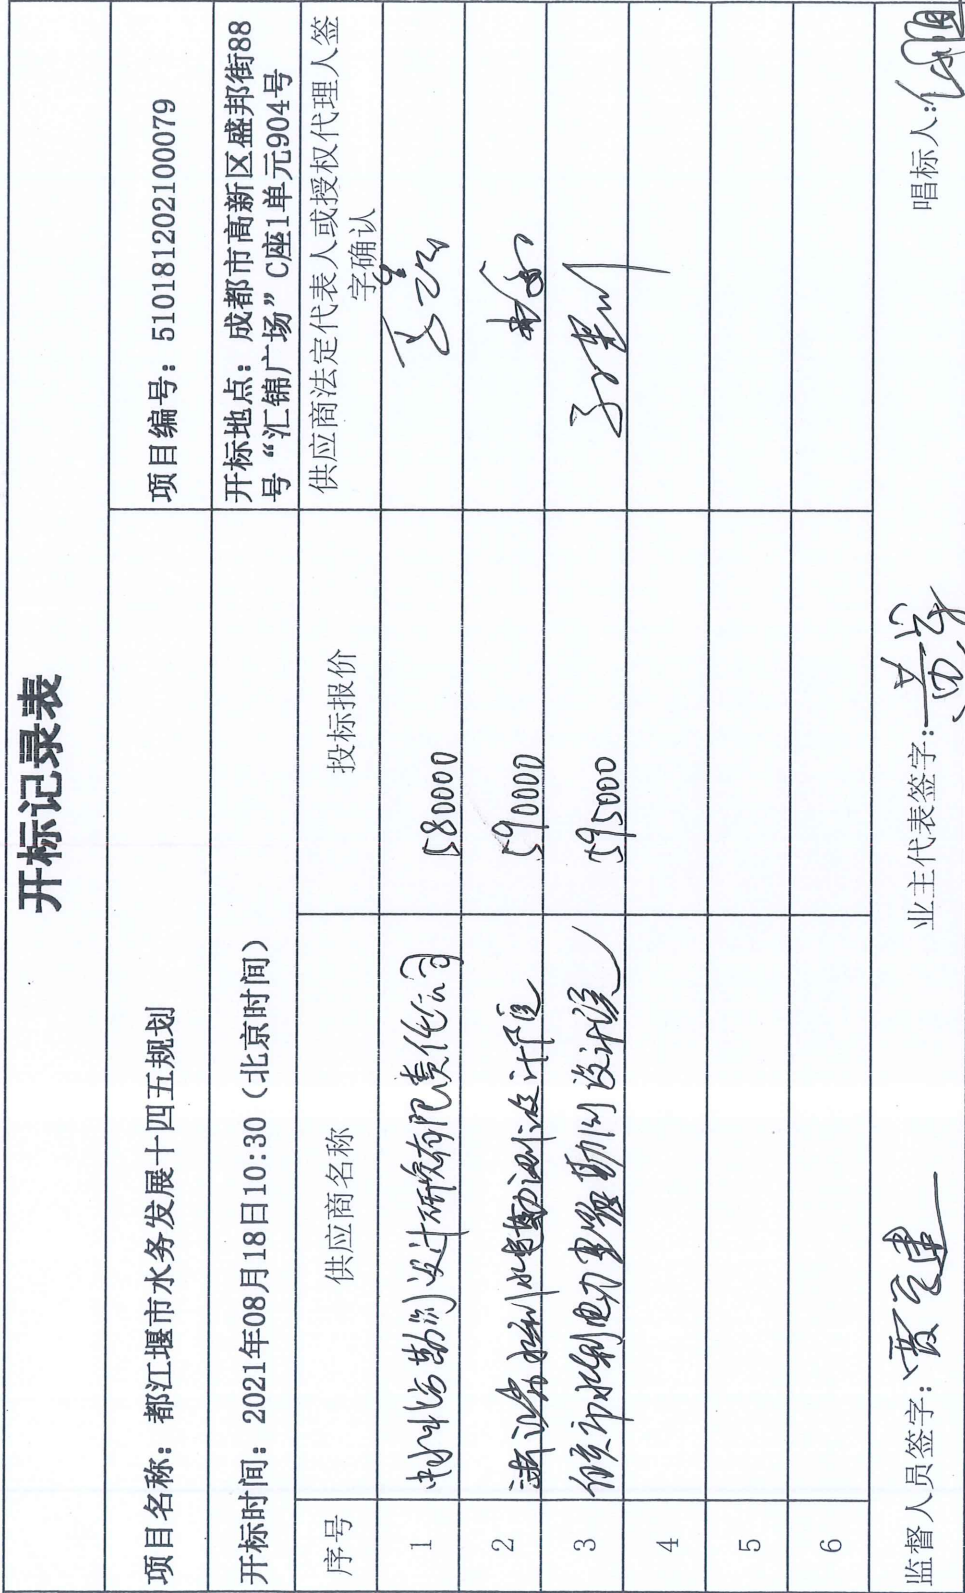 开标记录表
项目名称：都江堰市水务发展十四五规划 项目编号：510181202100079
开标时间：2021年08月18日10:30（北京时间） 开标地点：成都市高新区盛邦街88
号“汇锦广场”C座1单元904号
序号 供应商名称 投标报价 供应商法定代表人或授权代理人签
字确认
1 勘测设计研究有限责任公司 580000
2 水利水电勘测设计院 590000
3 市水利电力勘测设计院 595000
4
5
6
监督人员签字： 业主代表签字： 唱标人：